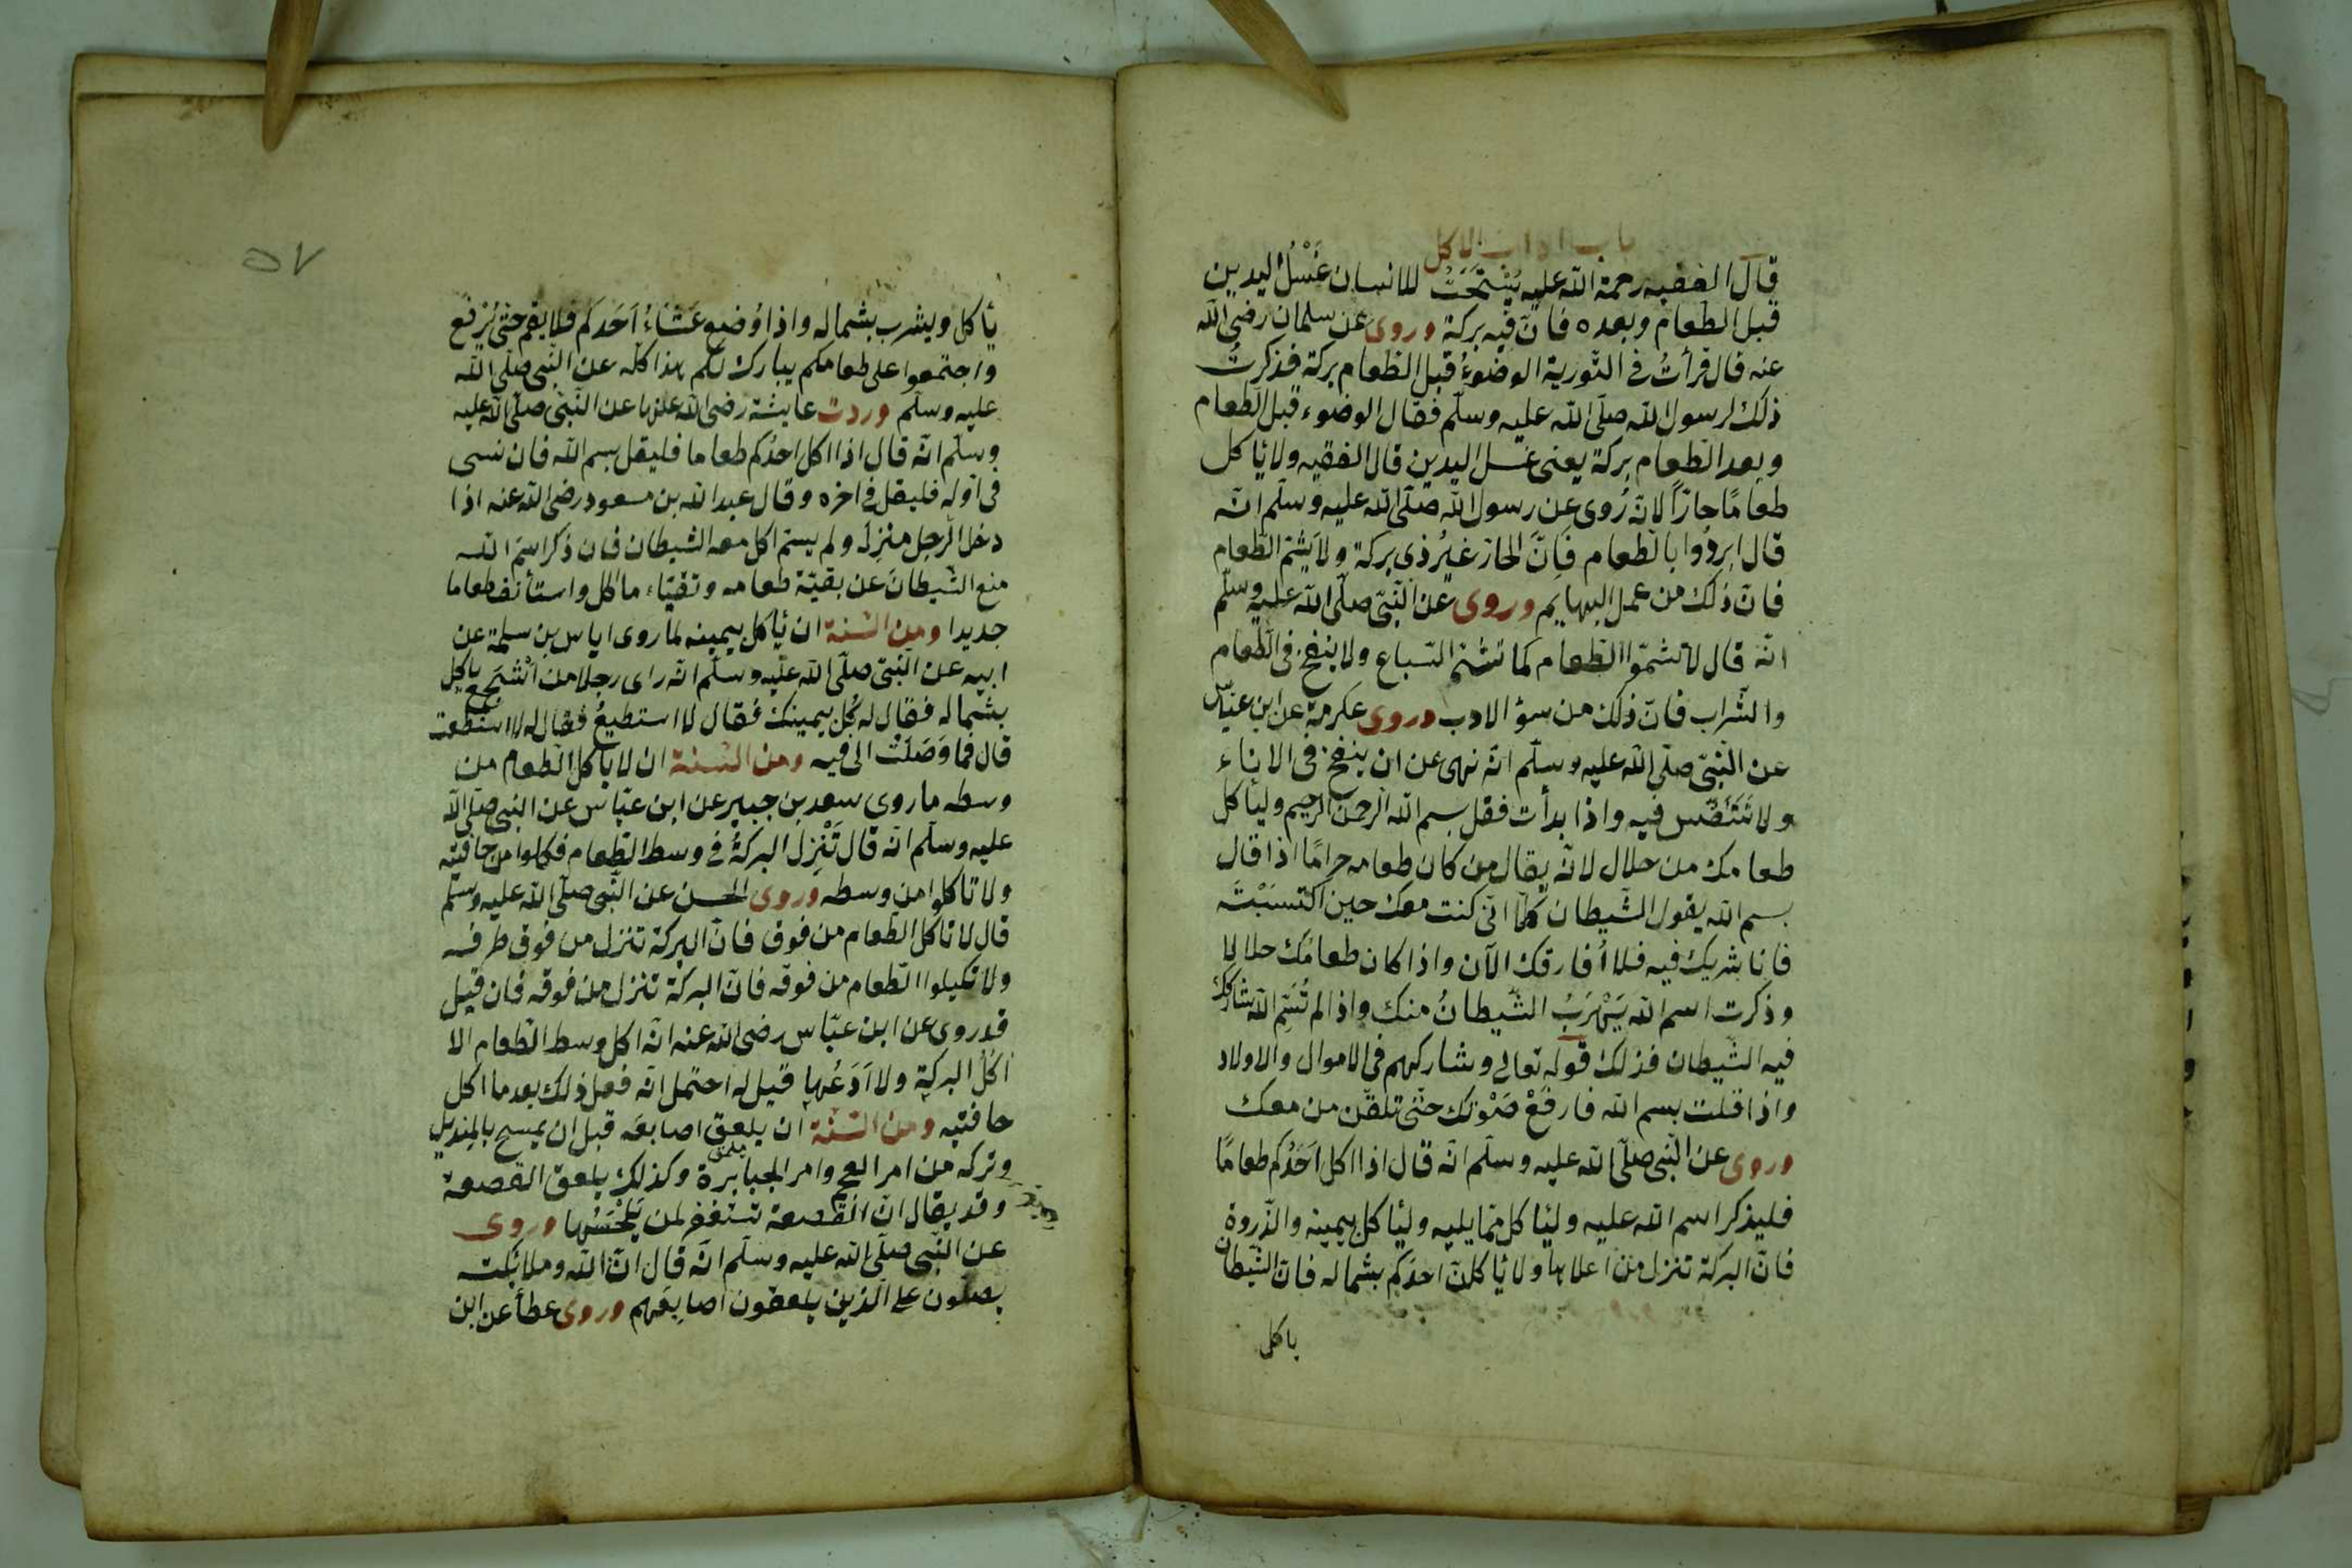 باب اداب الاكل
قال الفقيه رحمة الله عليه يُسْتَحَبُّ للانسان غَسْلُ اليدين
قبل الطعام وبعده فانّ فيه بركة وروى عن سلمان رضى الله
عنه قال قرأتُ فى التّورية الوضوءُ قبل الطعام بركة فذكرتُ
ذلك لرسول الله صلّى الله عليه وسلّم فقال الوضوء قبل الطعام
وبعد الطعام بركة يعنى غسل اليدين قال الفقيه ولا يأكل
طعامًا حارّاً لانّه رُوى عن رسول الله صلّى الله عليه وسلّم انّه
قال ابردُوا بالطعام فانّ الحارّ غيرُ ذى بركة ولا يشمّ الطّعام
فانّ ذلك من عمل البهايم وروى عن النّبىّ صلّى الله عليه وسلّم
انّه قال لا تشمّوا الطّعام كما تشمّ السّباع ولا ينفخ فى الطّعام
والشّراب فانّ ذلك من سؤ الادب وروى عكرمة عن ابن عبّاس
عن النّبىّ صلّى الله عليه وسلّم انّه نهى عن ان ينفخ فى الاناء
ولا تَتَنَفَّس فيه واذا بدأت فقل بسم الله الرحمن الرحيم وليأكل
طعامك من حلال لانّه يقال من كان طعامه حرامًا اذا قال
بسم الله يقول الشّيطان كلّا انّى كنت معك حين اكتسَبْتَه
فانا شريك فيه فلا اُفارقك الآن واذا كان طعامُك حلالا
وذكرت اسم الله يَهْرَبُ الشّيطانُ منك واذا لم تُسَمِّ الله شاركك
فيه الشّيطان فذلك قوله تعالى وشاركهم فى الاموال والاولاد
واذا قلت بسم الله فارفَعْ صَوْتك حتّى تلقّن من معك
وروى عن النّبى صلّى الله عليه وسلّم انّه قال اذا اكل اَحَدُكم طعامًا
فليذكر اسم الله عليه وليأكل ممّا يليه وليأكل بيمينه والذّروة
فانّ البركة تنزل من اعلاها ولا يأكلنّ احدُكم بشماله فانّ الشّيطان
ياكل
٥٧
يأكل ويشرب بشماله واذا وُضع عَشَاءُ اَحَدكُم فلا يقم حتّى يُرْفع
واجتمعوا على طعامكم يبارك لكم هذا كلّه عن النّبى صلّى الله
عليه وسلّم وردت عايشة رضى الله عنها عن النّبى صلّى الله عليه
وسلّم انّه قال اذا اكل احدُكم طعاما فليقل بسم الله فان نسى
فى اوّله فليقل فى اخره وقال عبد الله بن مسعود رضى الله عنه اذا
دخل الرّجل منزله ولم يسمّ اكل معه الشيطان فان ذكر اسم الله
منع الشّيطانَ عن بقيّة طعامه وتقيّاء ما اكل واستأنف طعاما
جديدا ومن السّنة ان يأكل بيمينه لما روى اياس بن سلمة عن
ابيه عن النّبىّ صلّى الله عليه وسلّم انّه راى رجلا من اَشْجَع ياكل
بشماله فقال له كُل بيمينك فقال لا استطيعُ فقال له لا استطعت
قال فما وَصَلَتْ الى فيه ومن السّنة ان لا ياكل الطّعام من
وسطه ما روى سعد بن جبير عن ابن عبّاس عن النبى صلّى الله
عليه وسلّم انّه قال تَنْزِل البركةُ فى وسط الطّعام فكلوا من حافتيه
ولا تاكلوا من وسطه وروى الحسن عن النّبى صلّى الله عليه وسلّم
قال لا تاكل الطّعام من فوق فانّ البركة تنزل من فوق طرفه
ولا تكيلوا الطّعام من فوقه فانّ البركة تنزل من فوقه فان قيل
قد روى عن ابن عبّاس رضى الله عنه انّه اكل وسط الطّعام الا
اكُلُ البركة ولا اَدَعُها قيل له احتمل انّه فعل ذلك بعد ما اكل
حافتيه ومن السّنّة ان يلعق اصابعَه قبل ان يمسح بالمنديل
وتركه من امر العجم وامر الجبابرة وكذلك يلعق القصعة
وقد يقال انّ القصعة تستغفر لمن يَلْحَسُها وروى
عن النّبى صلّى الله عليه وسلّم انّه قال انّ الله وملائكته
يصلّون على الّذين يلعقون اصابعَهم وروى عطأ عن ابن